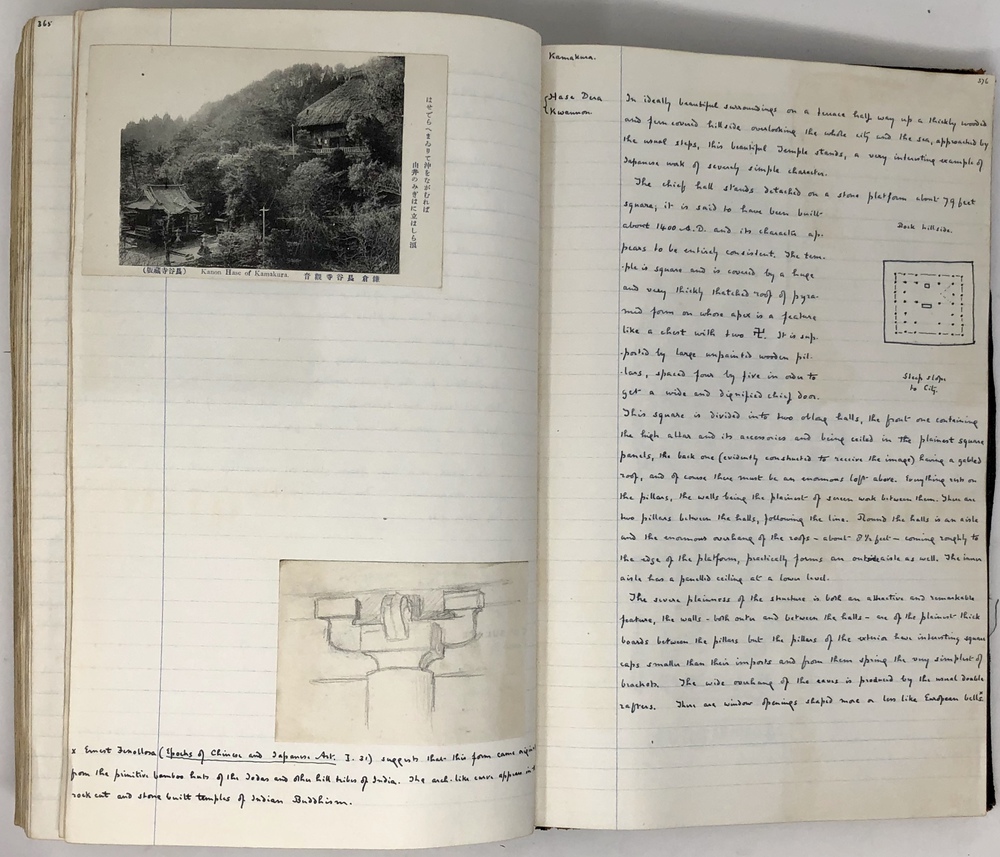 365
はせでらへまゐりて沖をながむれば
由井のみぎはに立はしら濤
(版蔵寺谷長) Kanon Hase of Kamakura. 音観寺谷長 倉鎌
x Ernest Fenollosa (Epochs of Chinese and Japanese Art. I. 31) suggests that this form came
from the primitive bamboo huts of the Todas and other hill tribes of India. The arch-like curve appears in
rock cut and stone built temples of Indian Buddhism.
Kamakura.
376
{Hase Dera
Kwannon
In ideally beautiful surroundings on a terrace half way up a thickly wooded
and fern covered hillside overlooking the whole city and the sea, approached by
the usual steps, this beautiful Temple stands, a very interesting example of
Japanese work of severely simple character.
The chief hall stands detached on a stone platform about 79 feet
square; it is said to have been built
about 1400 A.D. and its character ap-
pears to be entirely consistent. The tem-
-ple is square and is covered by a huge
and very thickly thatched roof of pyra-
mid form on whose apex is a feature
like a chest with two 卍. It is sup-
-ported by large unpainted wooden pil-
-lars, spaced four by five in order to
get a wide and dignified chief door.
Rock hillside.
Steep slope
to City.
This square is divided into two oblong halls, the front one containing
the high altar and its accessories and being ceiled in the plainest square
panels, the back one (evidently constructed to receive the image) having a gabled
roof, and of course there must be an enormous loft above. Everything rests on
the pillars, the walls being the plainest of screen work between them. There are
two pillars between the halls, following the line. Round the halls is an aisle
and the enormous overhang of the roofs - about 8½ feet - coming roughly to
the edge of the platform, practically forms an outside aisle as well. The inner
aisle has a panelled ceiling at a lower level.
The severe plainness of the structure is both an attractive and remarkable
feature, the walls - both outer and between the halls - are of the plainest thick
boards between the pillars but the pillars of the exterior have interesting square
caps smaller than their imposts and from them spring the very simplest of
brackets. The wide overhang of the eaves is produced by the usual double
rafters. There are window openings shaped more or less like European bells x